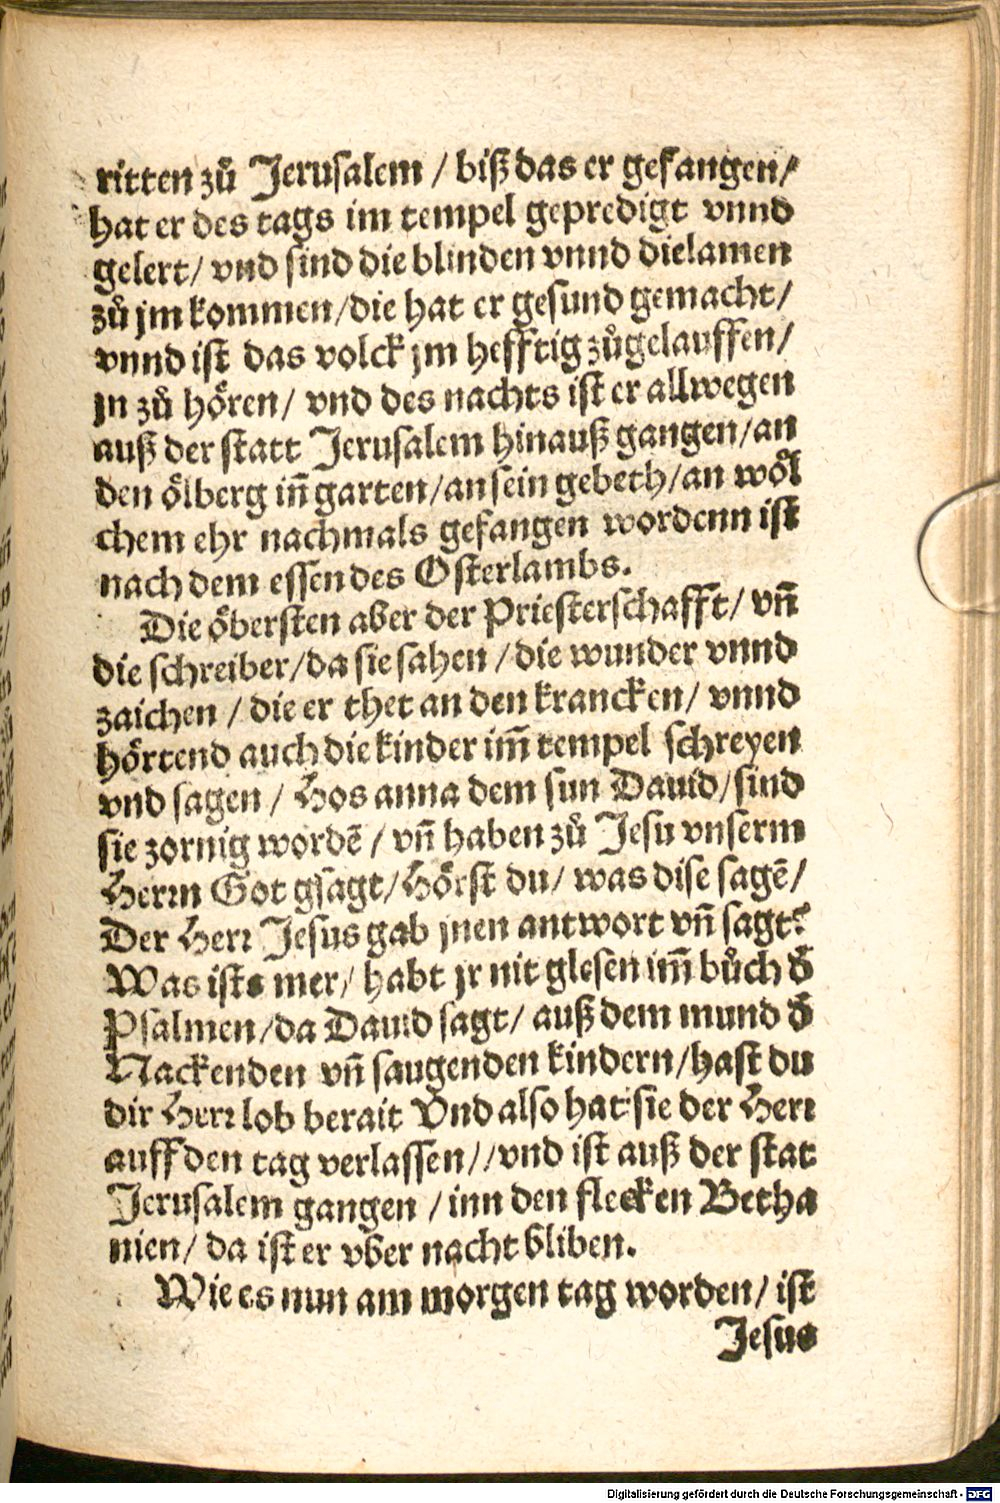 ritten zů Jerusalem / biß das er gefangen /
hat er des tags im tempel gepredigt vnnd
gelert / vnd sind die blinden vnnd die lamen
zů jm kommen / die hat er gesund gemacht /
vnnd ist das volck jm hefftig zůgelauffen /
jn zů hören / vnd des nachts ist er allwegen
auß der statt Jerusalem hinauß gangen / an
den ölberg iñ garten / an sein gebeth / an wöl
chem ehr nachmals gefangen wordenn ist
nach dem essen des Osterlambs.
Die öbersten aber der Priesterschafft / vñ
die schreiber / da sie sahen / die wunder vnnd
zaichen / die er thet an den krancken / vnnd
hörtend auch die kinder im̃ tempel schreyen
vnd sagen / Hos anna dem sun Dauid / sind
sie zornig wordē / vñ haben zů Jesu vnserm
Herrn Got gsagt / Hörst du / was dise sagē /
Der Herr Jesus gab jnen antwort vñ sagt:
Was ists mer / habt jr nit glesen im̃ bůch d̄
Psalmen / da Dauid sagt / auß dem mund d̄
Nackenden vñ saugenden kindern / hast du
dir Herr lob berait Vnd also hat sie der Herr
auff den tag verlassen / / vnd ist auß der stat
Jerusalem gangen / inn den flecken Betha
nien / da ist er vber nacht bliben.
Wie es nun am morgen tag worden / ist
Jesus
Digitalisierung gefördert durch die Deutsche Forschungsgemeinschaft - DFG